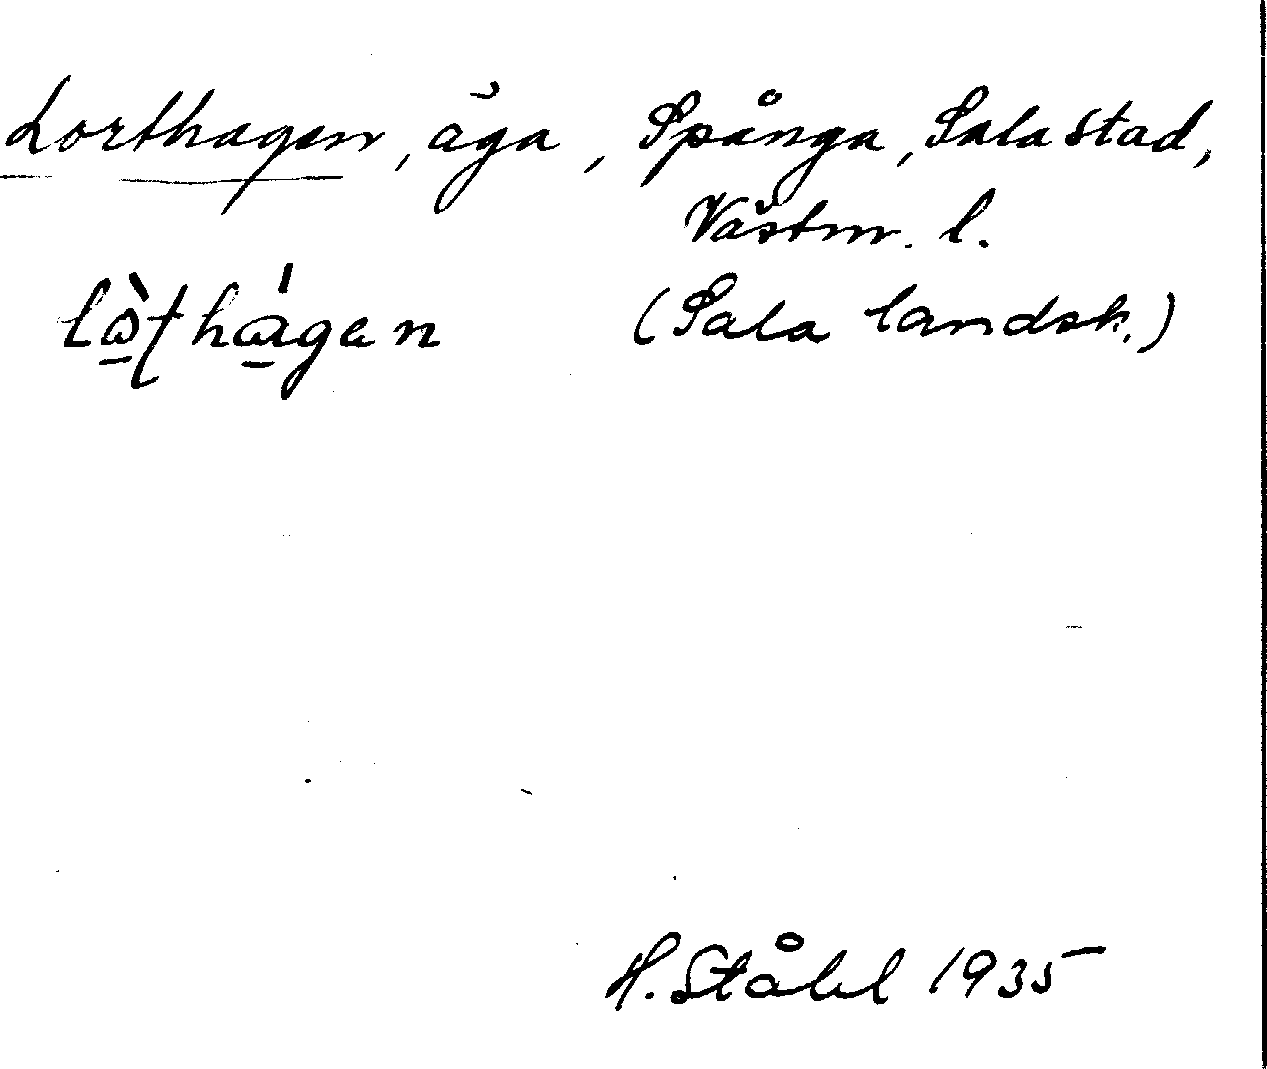 Lorthagen, äga, Spånga, Sala stad,
Västm. l.
lȯ̱̀ṭhá̱gen (Sala landsk.)
H. Ståhl 1935